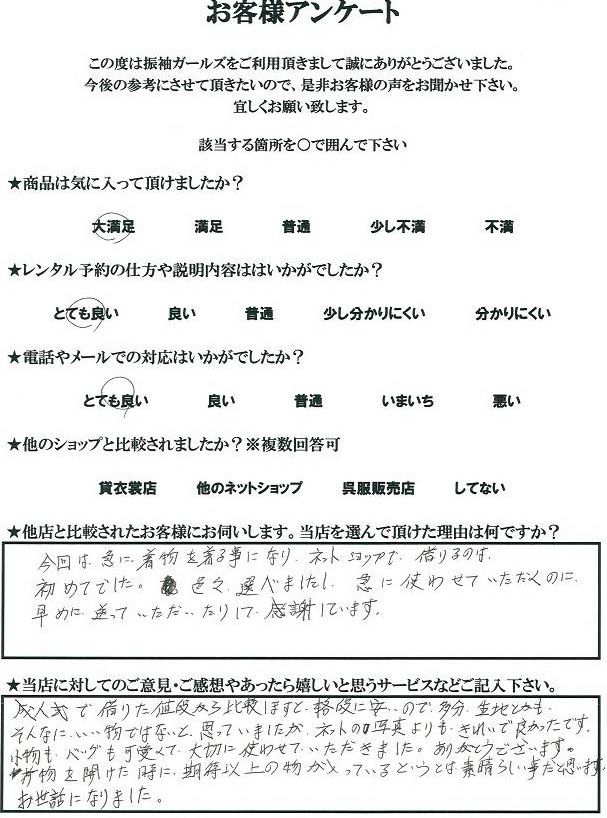 お客様アンケート
この度は振袖ガールズをご利用頂きまして誠にありがとうございました。
今後の参考にさせて頂きたいので、是非お客様の声をお聞かせ下さい。
宜しくお願い致します。
該当する箇所を○で囲んで下さい
★商品は気に入って頂けましたか？
大満足 満足 普通 少し不満 不満
★レンタル予約の仕方や説明内容ははいかがでしたか？
とても良い 良い 普通 少し分かりにくい 分かりにくい
★電話やメールでの対応はいかがでしたか？
とても良い 良い 普通 いまいち 悪い
★他のショップと比較されましたか？※複数回答可
貸衣裳店 他のネットショップ 呉服販売店 してない
★他店と比較されたお客様にお伺いします。当店を選んで頂けた理由は何ですか？
今回は、急に着物を着る事になり、ネットショップで、借りるのは、
初めてでした。 色々、選べましたし、急に使わせていただくのに、
早めに送っていただいたりして、感謝しています。
★当店に対してのご意見・ご感想やあったら嬉しいと思うサービスなどご記入下さい。
成人式で借りた値段から比較しますと、格段に安いので、多分、生地とかも、
そんなに、いい物ではないと思っていましたが、ネットの写真よりも、きれいで良かったです。
小物も、バッグも可愛くて、大切に使わせていただきました。ありがとうございます。
荷物を開けた時に、期待以上の物が入っているというのは素晴らしい事だと思います。
お世話になりました。